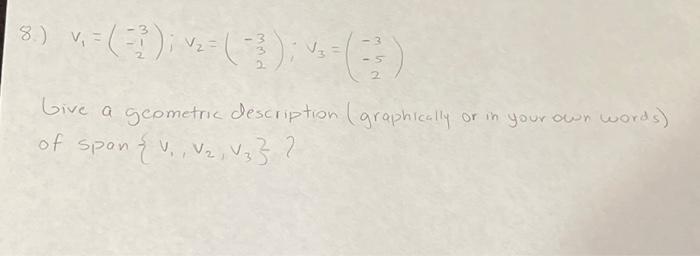 8.) v₁ = (-3 -1 2); v₂ = (-3 3 2); v₃ = (-3 -5 2)
Give a geometric description (graphically or in your own words)
of span {v₁, v₂, v₃} ?